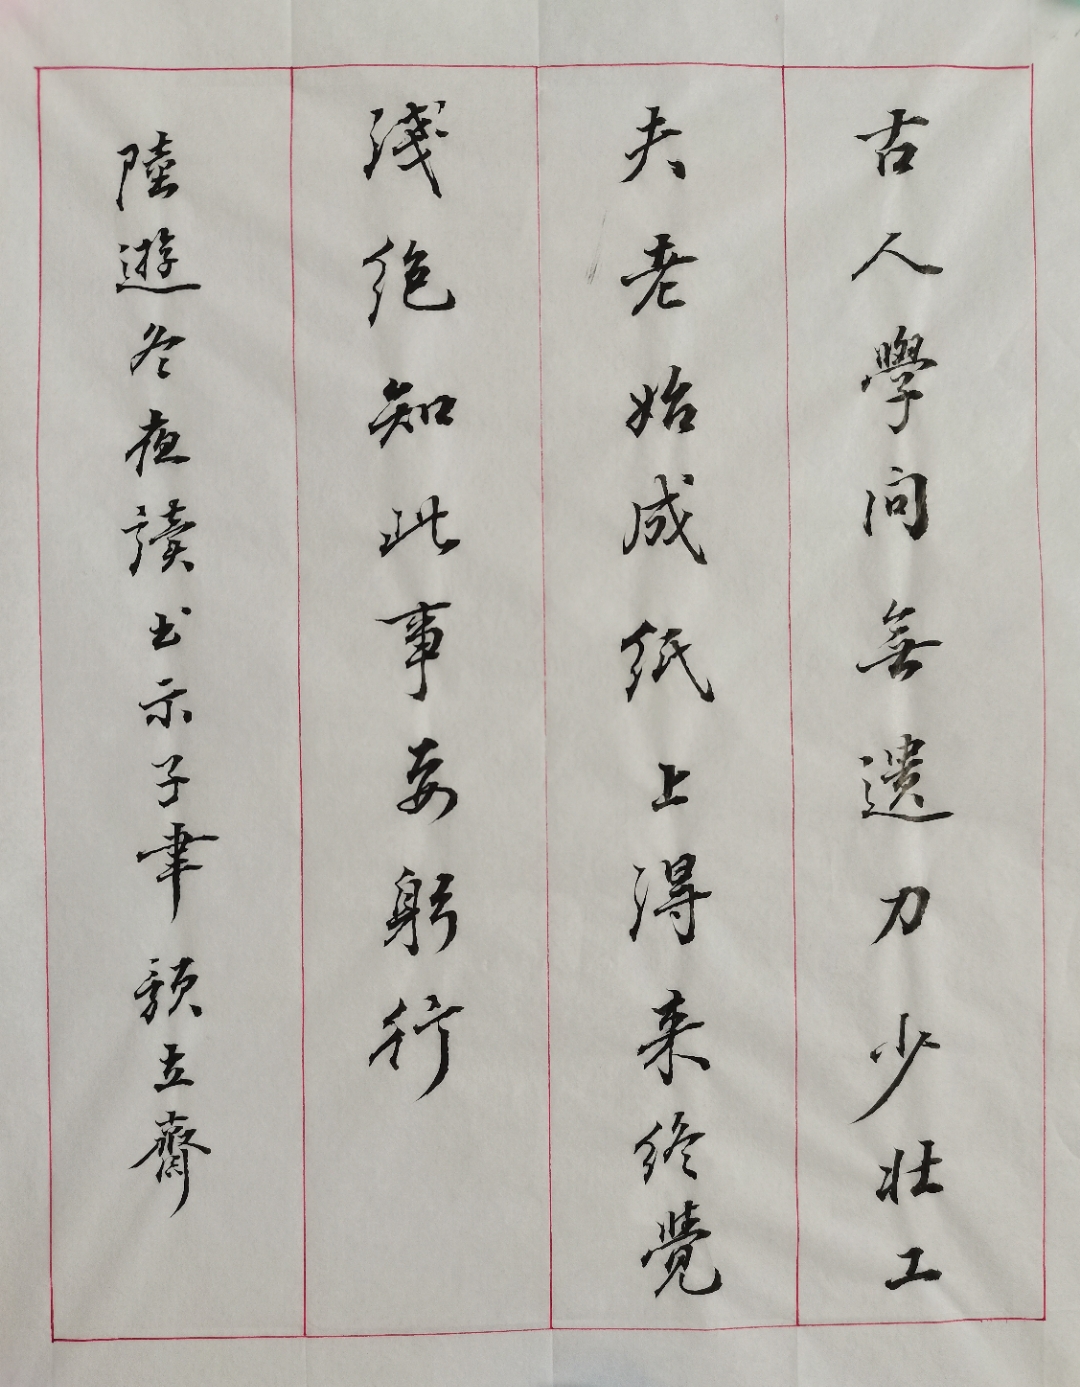 古人學问無遺力少壯工
夫老始成紙上得来终覺
淺絶知此事要躬行
陸遊冬夜讀书示子聿
立齋